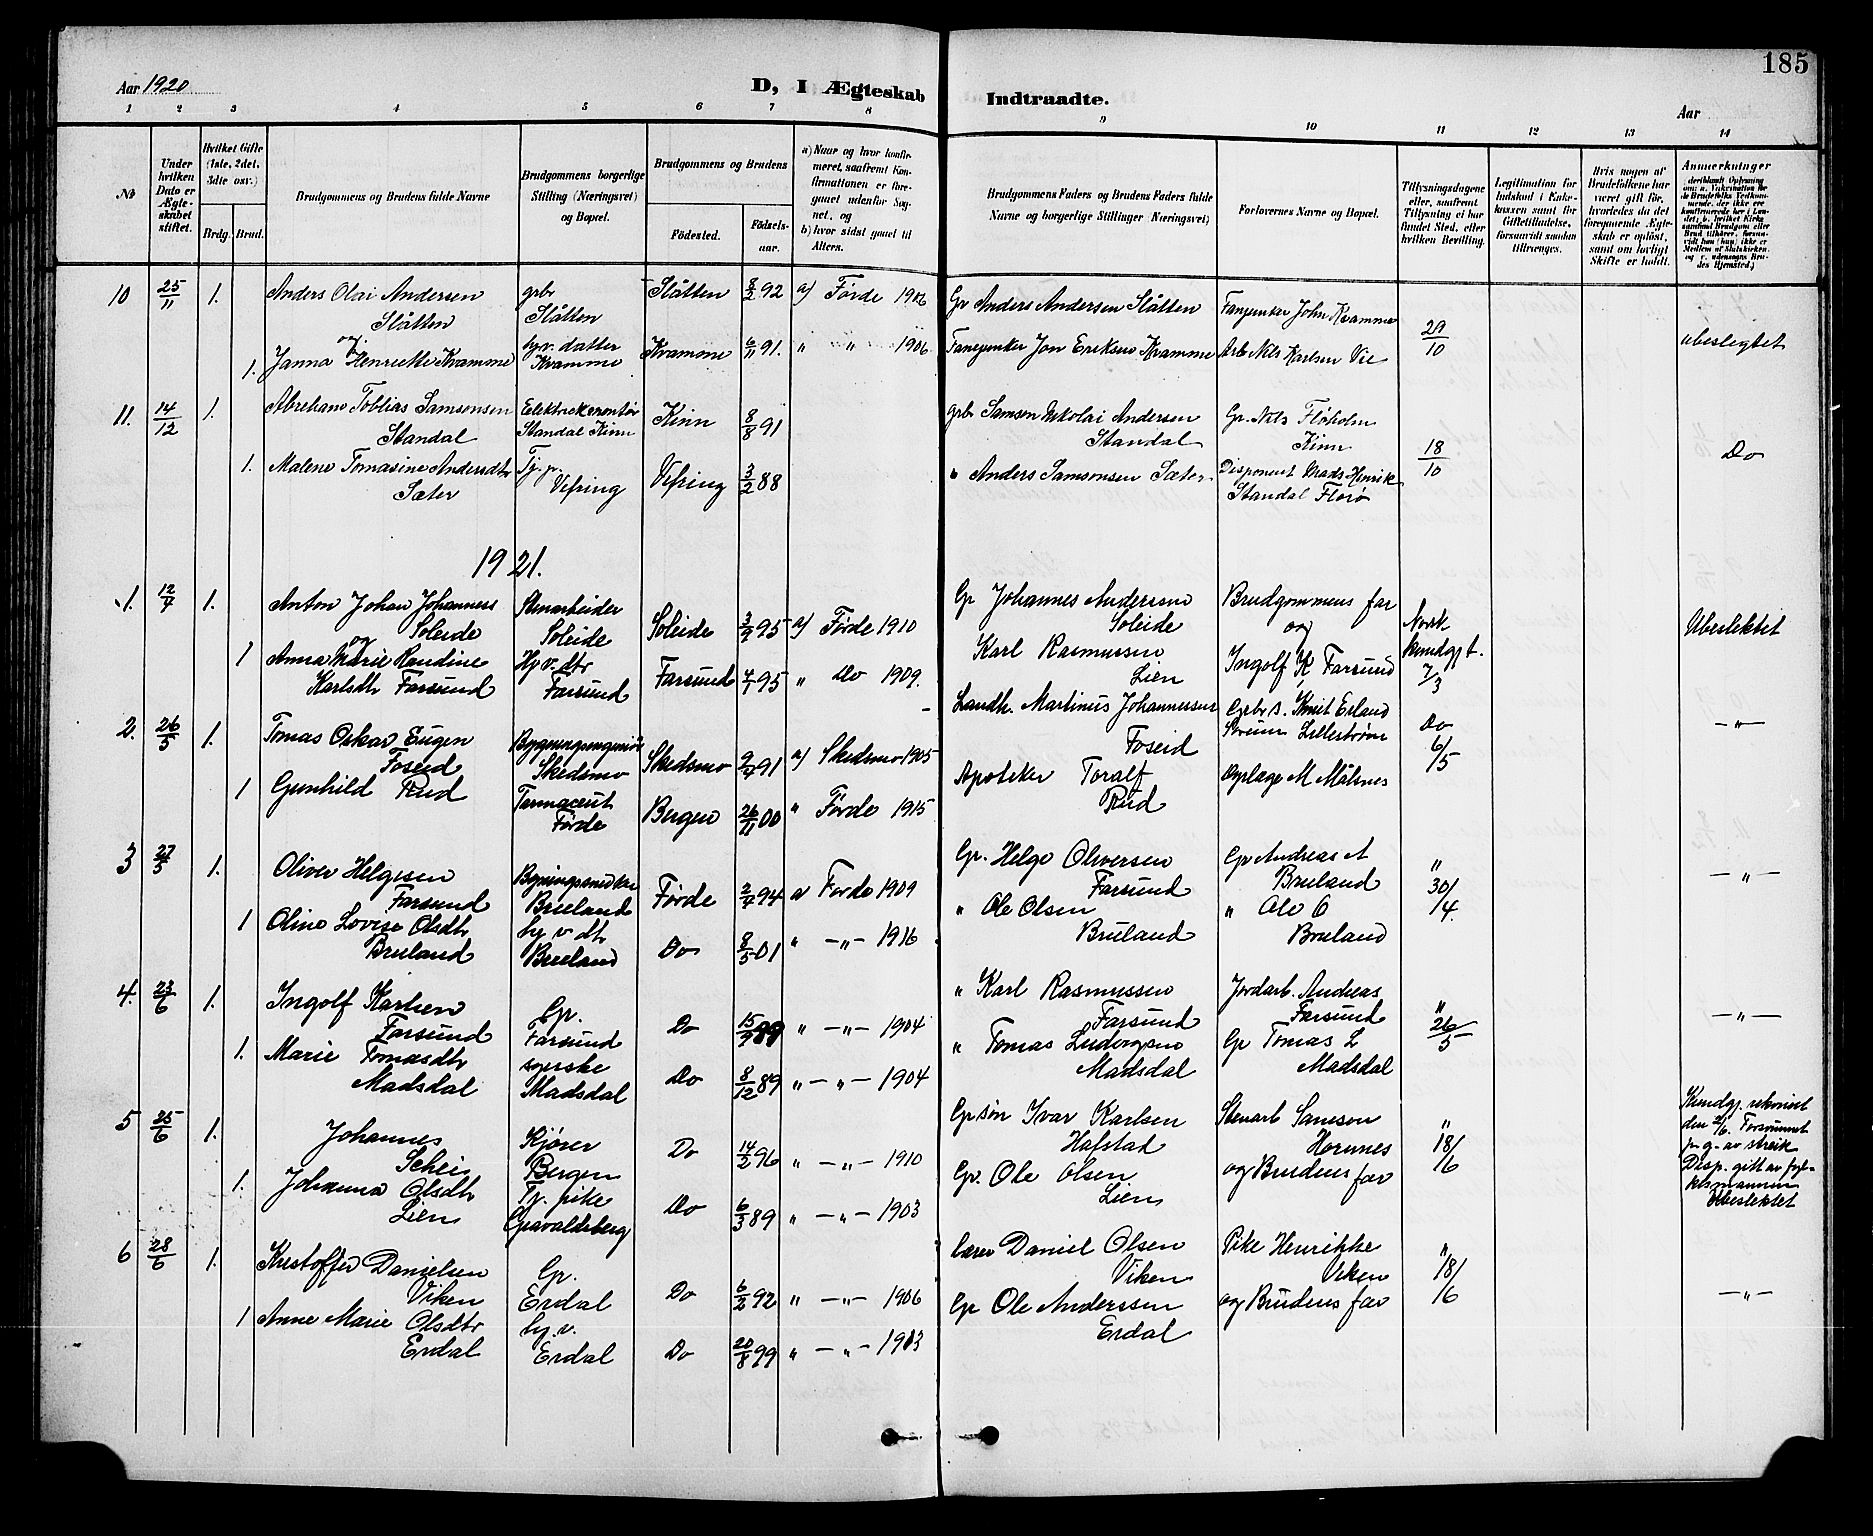 185
Aar 1920
D, I Ægteskab Indtraadte.
Aar
1 2 3 4 5 6 7 8 9 10 11 12 13 14
No
Under hvilken Dato er Ægteskabet stiftet.
Hvilket Gifte (1ste, 2det, 3die osv.)
Brdg. Brud.
Brudgommens og Brudens fulde Navne
Brudgommens borgerlige Stilling (Næringsvei) og Bopæl.
Brudgommens og Brudens
Fødested.
Fødselsaar.
a) Naar og hvor konfirmeret, saafremt Konfirmationen er foregaaet udenfor Sognet, og
b) hvor sidst gaaet til Alters.
Brudgommens Faders og Brudens Faders fulde Navne og borgerlige Stillinger (Næringsvei)
Forlovernes Navne og Bopæl.
Tillysningsdagene eller, saafremt Tillysning ei har fundet Sted, efter hvilken Bevilling.
Legitimation for Indskud i Enkekassen samt for Giftetilladelse, forsaavidt saadan tiltrænges.
Hvis nogen af Brudefolkene har været gift før, hvorledes da det foregaaende Ægteskab er opløst, samt om lovligt Skifte er holdt.
Anmerkninger
10 25/11 1. Anders Olai Andersen grbr Slåtten 8/2 92 a) Førde 1906 Gr Anders Andersen Slåtten Fanejunker John Kvamme 29/10
Slåtten Slåtten
og hjv. datter ubeslegtet
1. Janna Henriette Kvamme Kvamme Kvamme 6/11 91. " " 1906 Fanejunker Jon Eriksen Kvamme Arb Nils Karlsen Vie
11. 14/12 1. Abraham Tobias Samsonsen Elektrikermontør Kinn 8/8 91 grbr Samson Nikolai Andersen Gr. Nils Fløholm
Standal Standal Kinn Standal Kinn 18/10 Do
1. Malene Tomasine Andersdtr Tj. p. Vefring 3/2 88 " Anders Samsonsen Sæter Disponent Mads Henrik
Sæter Vefring Standal Florø
1921.
1. 12/4 1. Anton Johan Johanness Stenarbeider Gr Johannes Andersen Brudgommens far
Soleide Soleide Soleide 3/9 95 a) Førde 1910 Soleide og Norsk Ubeslektet
og Karl Rasmussen kundgjt.
1 Anna Marie Randine Hjv. dtr Farsund 4/1 95 " Do 1909. Lien Ingolf K Farsund 7/3
Karlsdtr Farsund Farsund
2. 26/5 1. Tomas Oskar Eugen Bygningsingeniør Landh. Martinus Johannessen Grbr s. Knut Erland Do — " —
Foseid Skedsmo Skedsmo 2/7 91 a) Skedsmo 1905 Foseid Strøm Lillestrøm 6/5
1 Gunhild Rud Farmaceut Bergen 26/11 00 " Førde 1915 Apoteker Toralf Rud M Målsnes
Førde
3 27/5 1. Oliver Helgesen Gr. Helge Oliversen Gr Andreas A "
Farsund Bruland Førde 2/7 94 a Førde 1909 Farsund Bruland 30/4. — " —
1 Oline Lovise Olsdtr hj v dtr " Ole Olsen " Ole O
Bruland Bruland Do 8/5 01 " — " — 1916 Bruland Bruland
4. 23/6 1. Ingolf Karlsen Gr. " Karl Rasmussen Jordarb. Andreas "
Farsund Farsund Do " — " — 1904 Farsund Farsund 26/5 — " —
1. Marie Tomasdtr syerske " Tomas Ludvigsen Gr Tomas L
Madsdal Madsdal Do 8/12 89 " — " — 1904 Madsdal Madsdal
5 25/6 1. Johannes Kjører Gr søn Ivar Karlsen Stenarb Samson " Kundgj. rekvirert
Schei Bergen Do 14/2 96 " — " — 1910 Hafstad Hornnes 18/6 den 2/6. Forsømmet
p. g. av streik
1. Johanna Olsdtr Tj. pike Gr. Ole Olsen og Brudens far Disp. gitt av fyl-
Lien Gravaldsberg Do 6/3 89 " — " — 1903 Lien kesmannen
Ubeslektet
6 28/6 1. Kristoffer Danielsen Gr. Lærer Daniel Olsen Pike Henrikke "
Viken Erdal Do 6/2 92 " — " — 1906 Viken Viken 18/6 — " —
1 Anne Marie Olsdtr hj. v. Gr Ole Anderssen og Brudens far
Erdal Erdal Do 20/8 99 " — " — 1913 Erdal